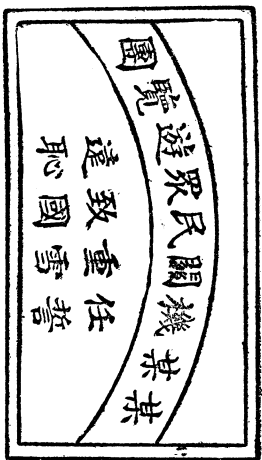 某某機關民眾遊覽團
任重致遠
誓雪國恥